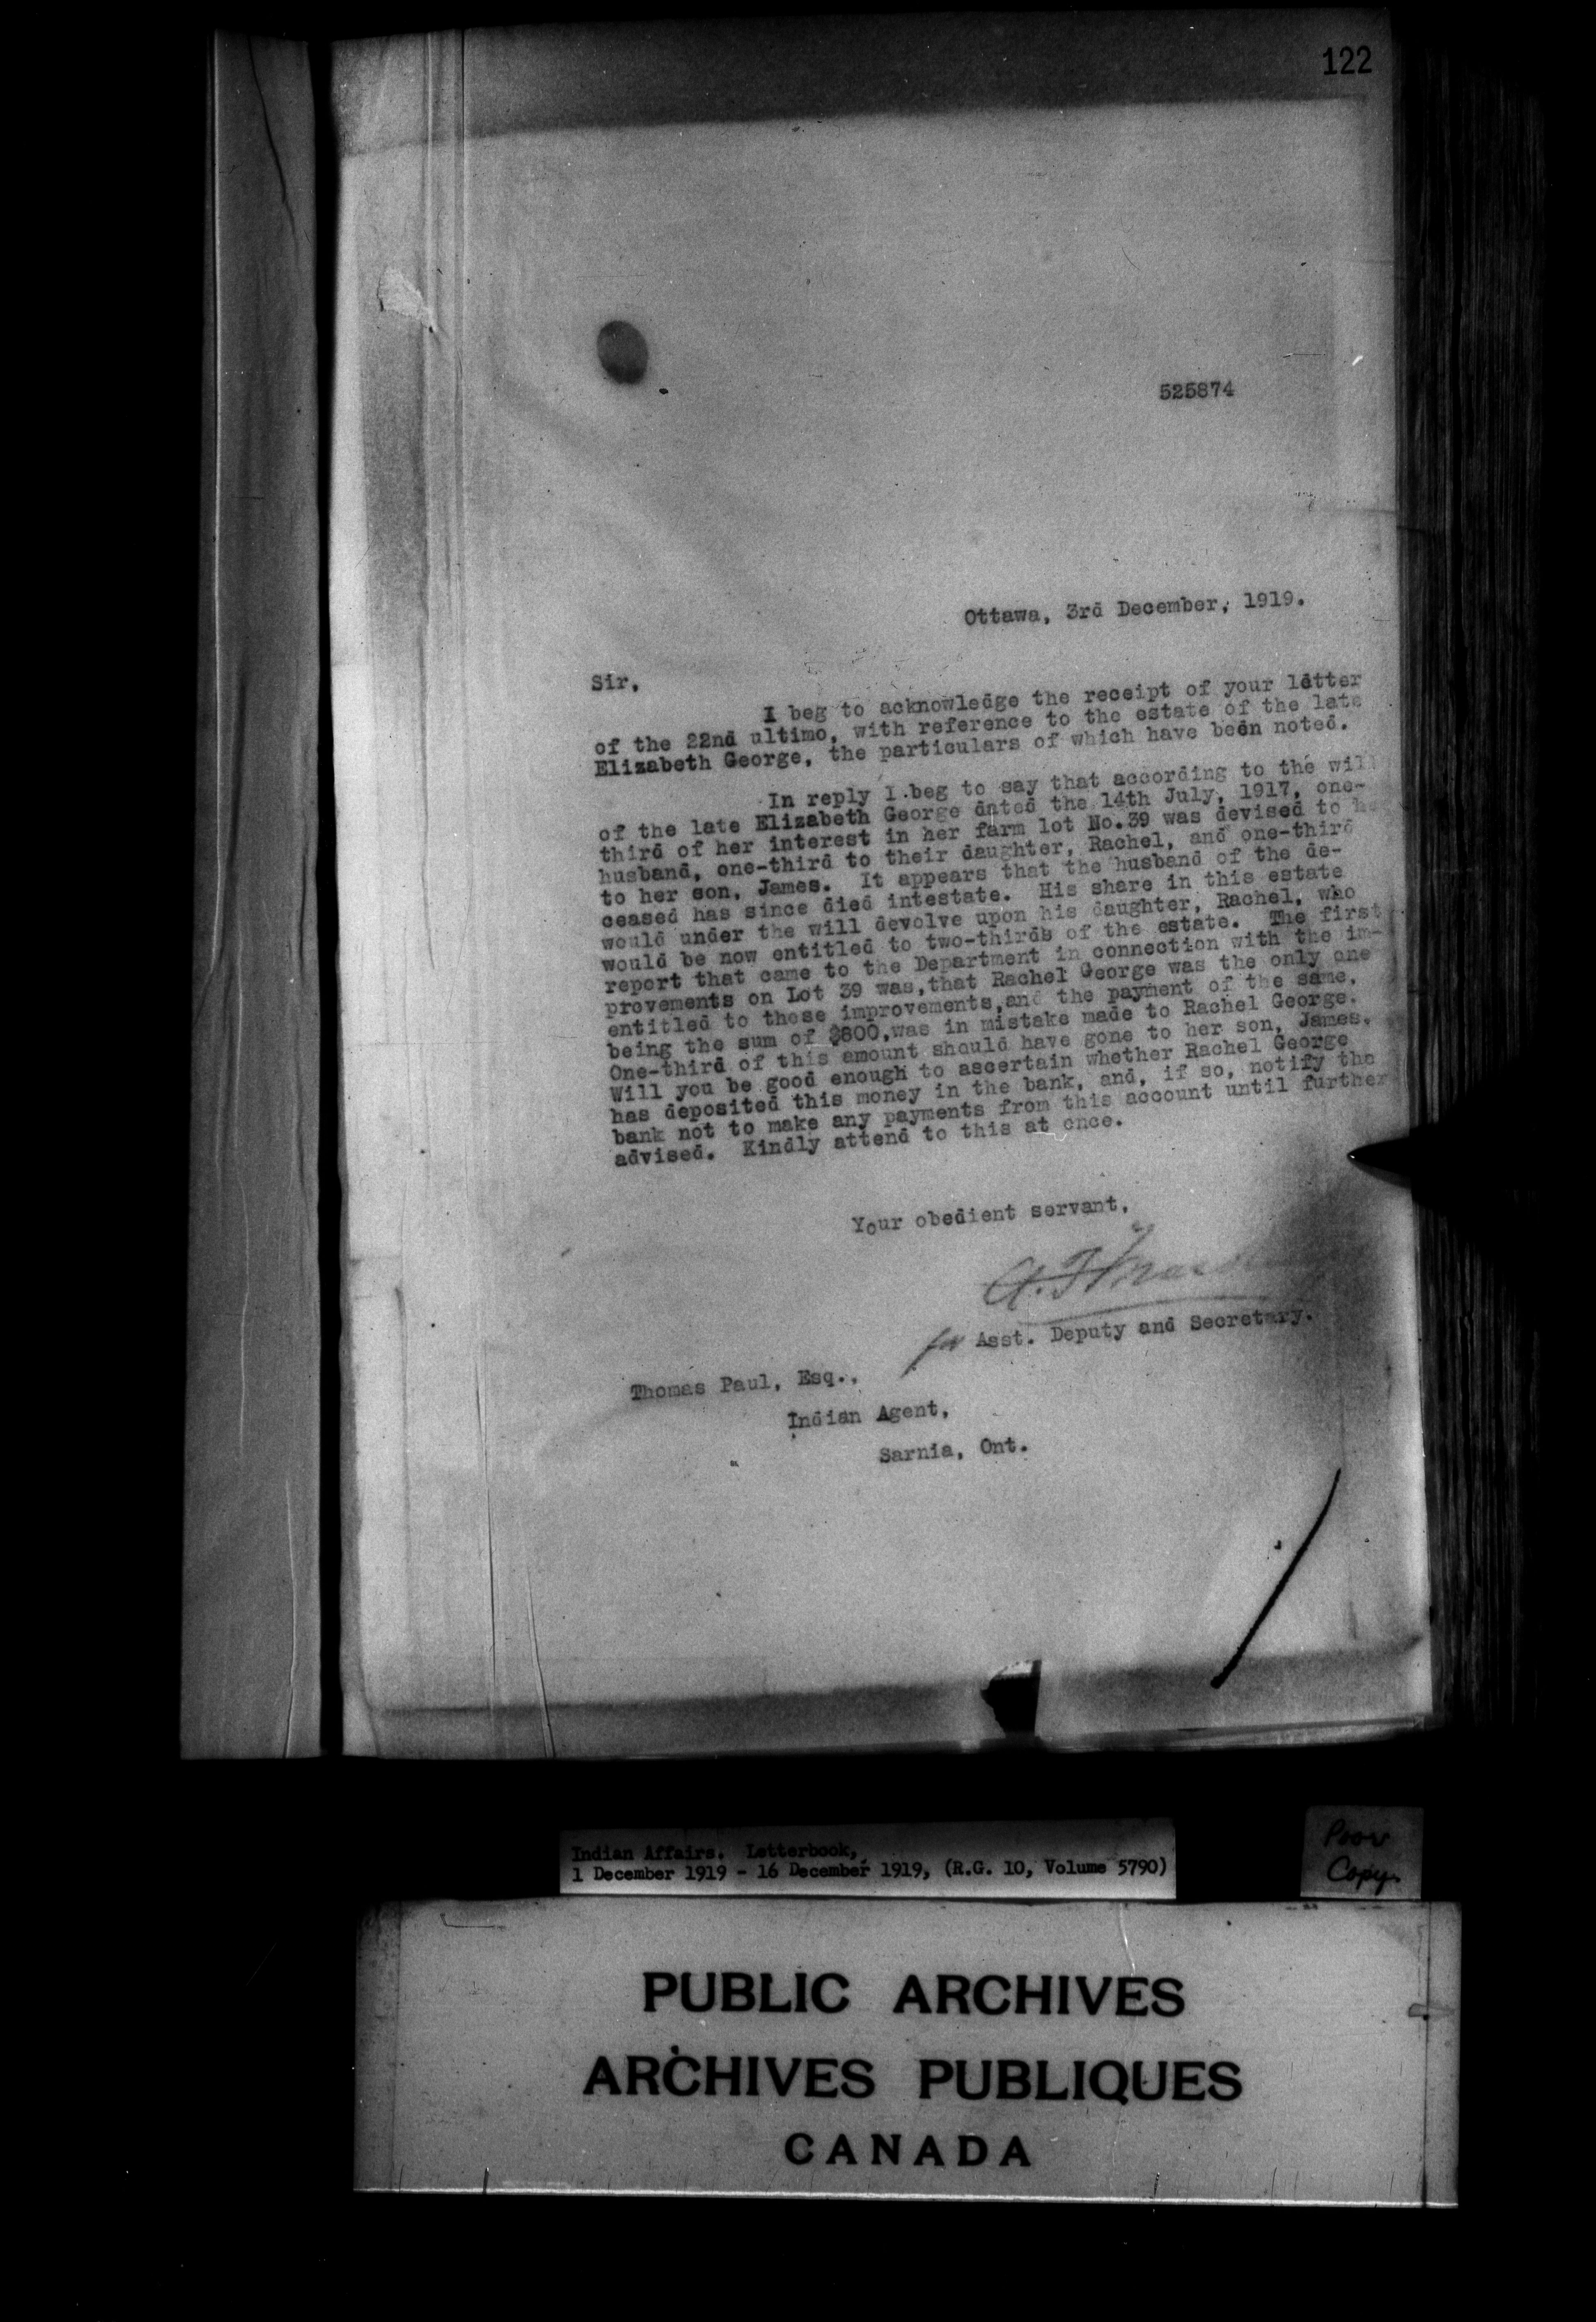 122
525874
Ottawa, 3rd December, 1919.
Sir,
I beg to acknowledge the receipt of your letter
of the 22nd ultimo, with reference to the estate of the late
Elizabeth George, the particulars of which have been noted.
In reply I beg to say that according to the will
of the late Elizabeth George dated the 14th July, 1917, one-
third of her interest in her farm lot No.39 was devised to
husband, one-third to their daughter, Rachel, and one-third
to her son, James. It appears that the husband of the de-
ceased has since died intestate. His share in this estate
would under the will devolve upon his daughter, Rachel, who
would be now entitled to two-thirds of the estate. The first
report that came to the Department in connection with the im-
provements on Lot 39 was, that Rachel George was the only one
entitled to these improvements, and the payment of the same,
being the sum of $800, was in mistake made to Rachel George.
One-third of this amount should have gone to her son, James.
Will you be good enough to ascertain whether Rachel George
has deposited this money in the bank, and, if so, notify the
bank not to make any payments from this account until further
advised. Kindly attend to this at once.
Your obedient servant,
for Asst. Deputy and Secretary.
Thomas Paul, Esq.,
Indian Agent,
Sarnia, Ont.
Indian Affairs. Letterbook,
1 December 1919 - 16 December 1919, (R.G. 10, Volume 5790)
Poor
Copy.
PUBLIC ARCHIVES
ARCHIVES PUBLIQUES
CANADA